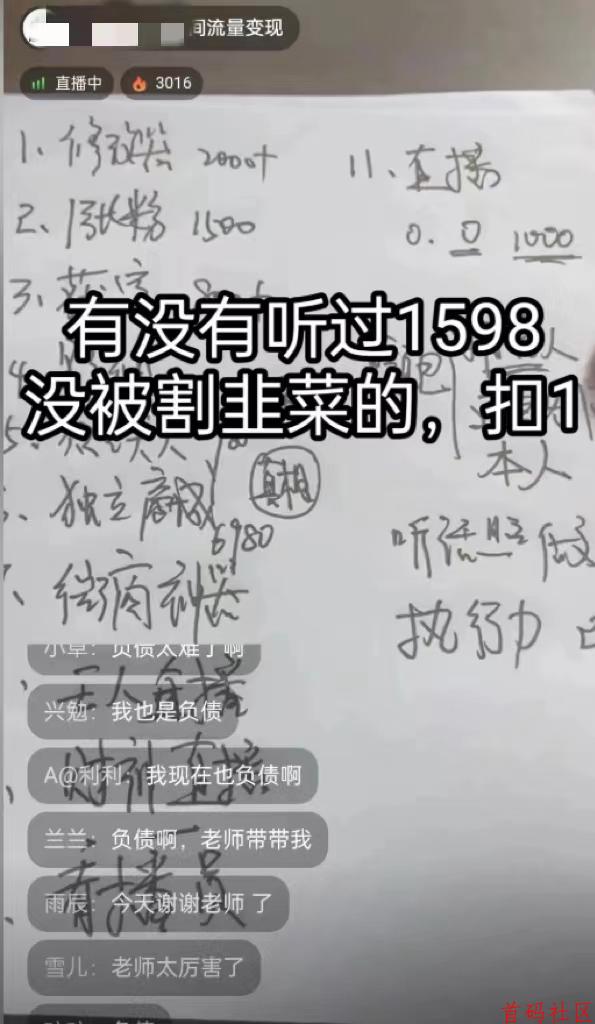 间流量变现
直播中
3016
1、修改器 2000+
2、涨粉 1500
3、
11、直播
0. 0 1000
有没有听过1598
没被割韭菜的，扣1
4
本人
真相
独立商城
6980
听话照做
微商神器
执行力
小草：负债太难了啊
无人直播
兴勉：我也是负债
A@利利：我现在也负债啊
财神直播
兰兰：负债啊，老师带带我
雨辰：今天谢谢老师 了
雪儿：老师太厉害了
首码社区